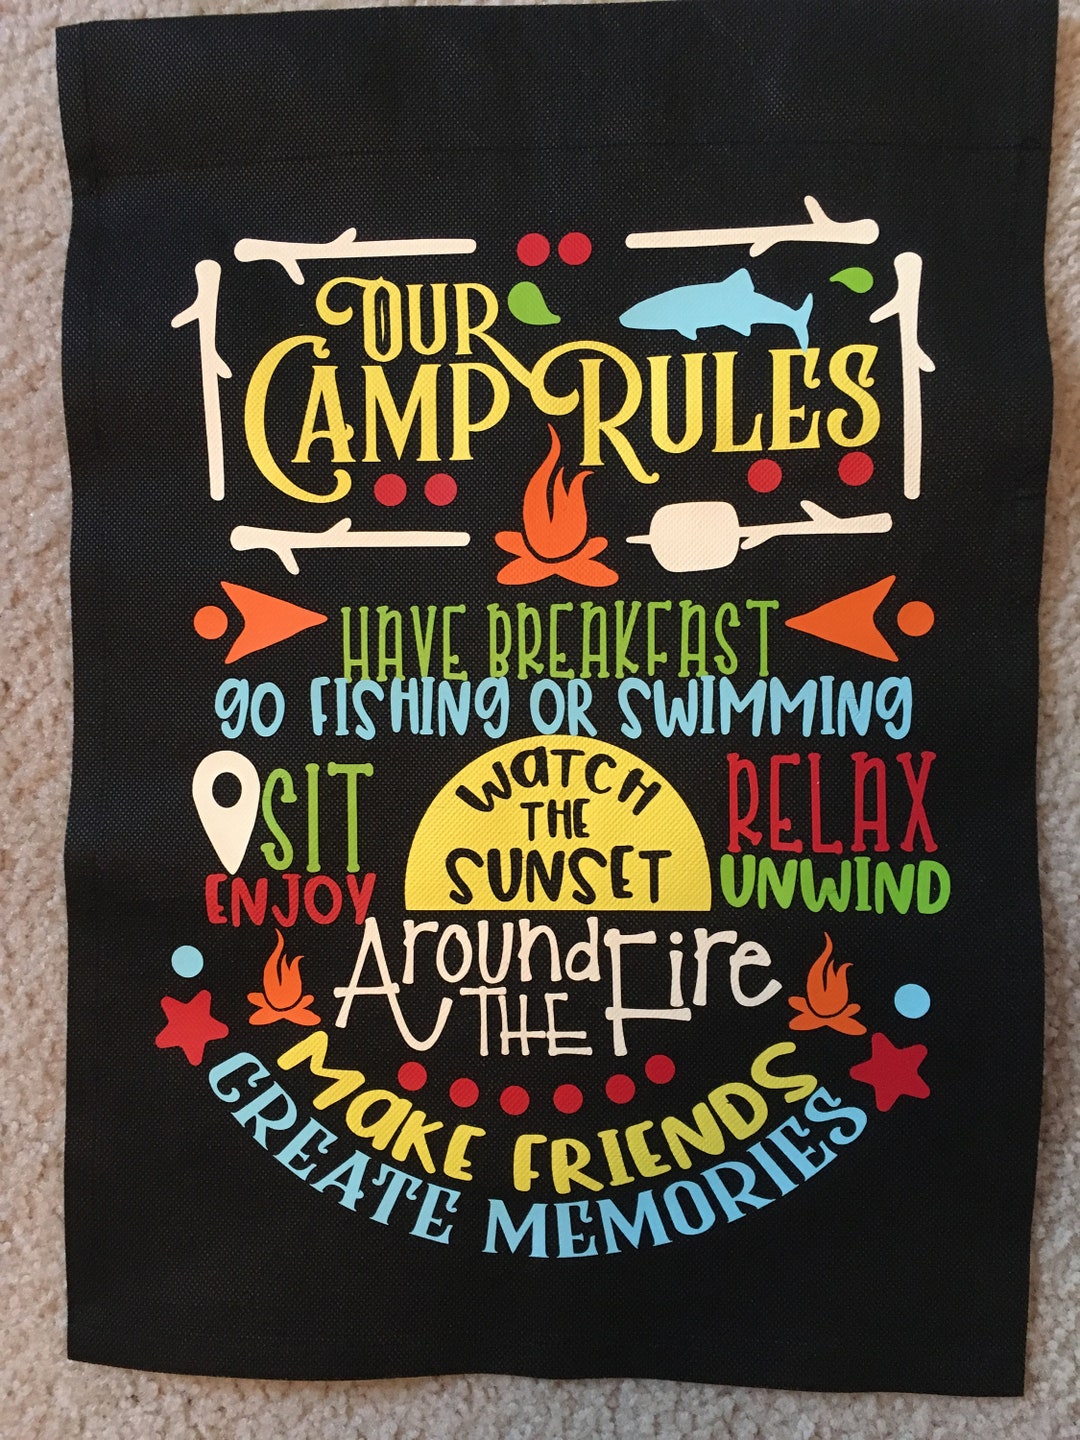 OUR
CAMP RULES
HAVE BREAKFAST
GO FISHING OR SWIMMING
SIT
ENJOY
WATCH
THE
SUNSET
RELAX
UNWIND
Around
THE Fire
MAKE FRIENDS
CREATE MEMORIES